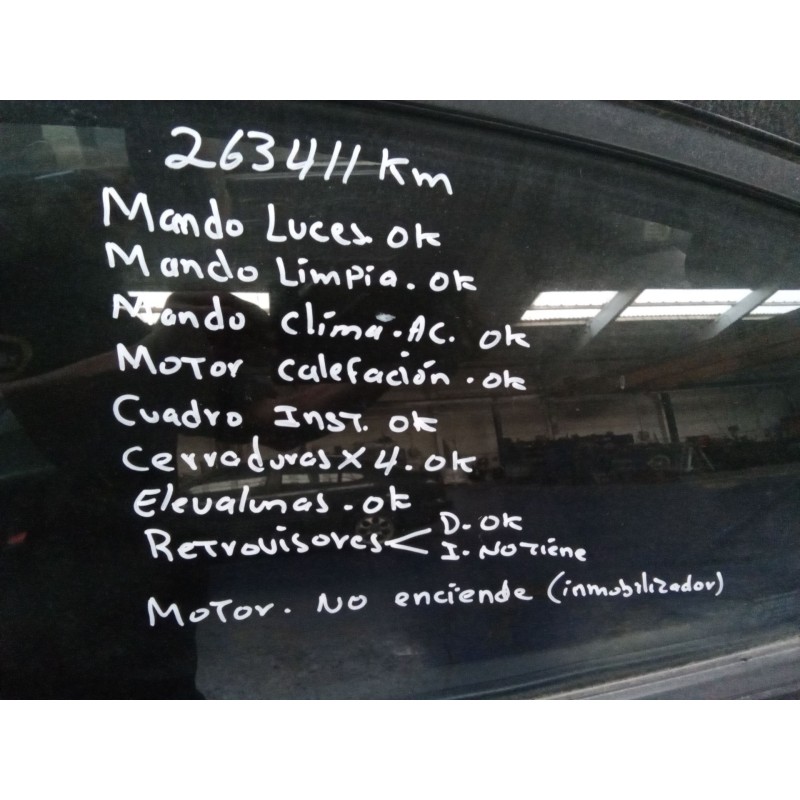 263411 Km
Mando Luces. OK
Mando Limpia. OK
Mando Clima. AC. OK
Motor Calefación. OK
Cuadro Inst. OK
Cerraduras X 4. OK
Elevalunas. OK
Retrovisores < D. OK
I. No Tiene
Motor. No enciende (inmobilizador)